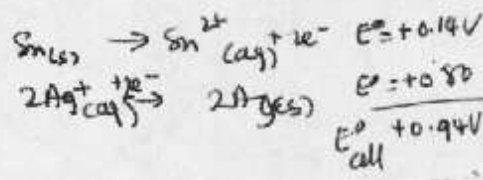 Sn(s) → Sn²⁺(aq) + 2e⁻ E° = +0.14V
2Ag⁺(aq) + 2e⁻ → 2Ag(s) E° = +0.80
E°cell +0.94V